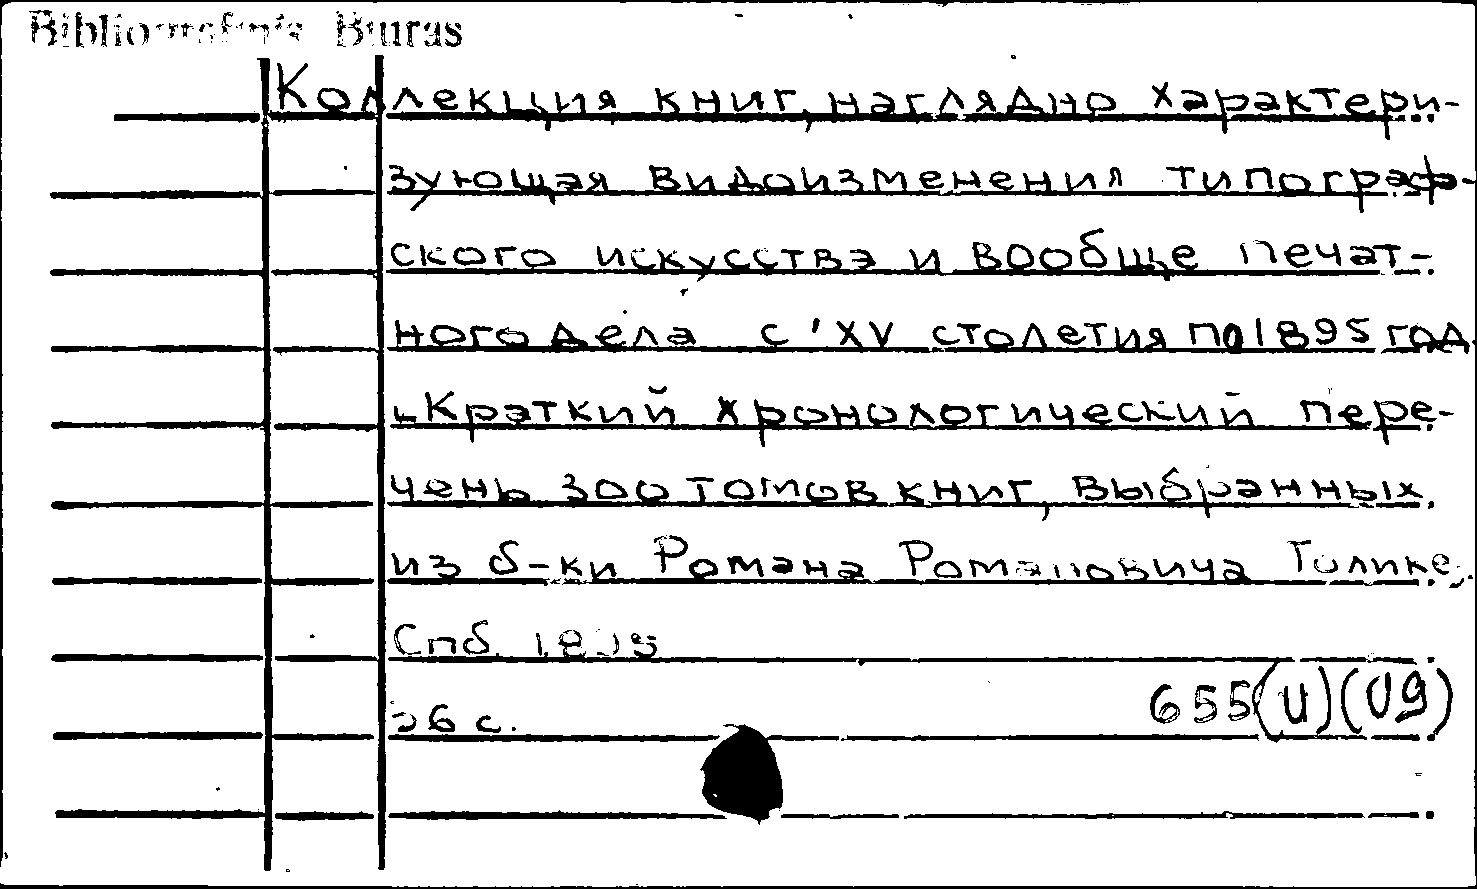 Bibliografinis Biuras
Коллекция книг, наглядно характери-
зующая видоизменения типограф-
ского искусства и вообще печат-
ного дела с XV столетия по 1895 год.
Краткий хронологический пере-
чень 300 томов книг, выбранных
из б-ки Романа Романовича Голике.
Спб. 1895
6 с.
655(И)(09)